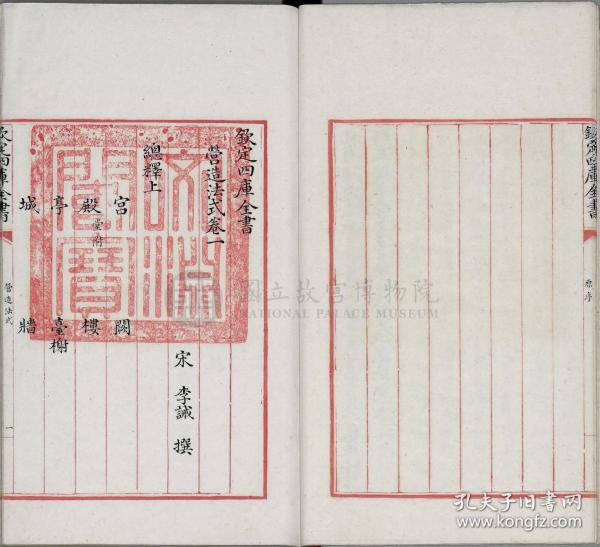 欽定四庫全書
原序
欽定四庫全書
營造法式卷一
宋 李誡 撰
總釋上
宮 闕
殿堂附 樓
亭 臺榭
城 牆
欽定四庫全書
營造法式
一
文淵閣寶
國立故宮博物院
NATIONAL PALACE MUSEUM
孔夫子旧书网
www.kongfz.com